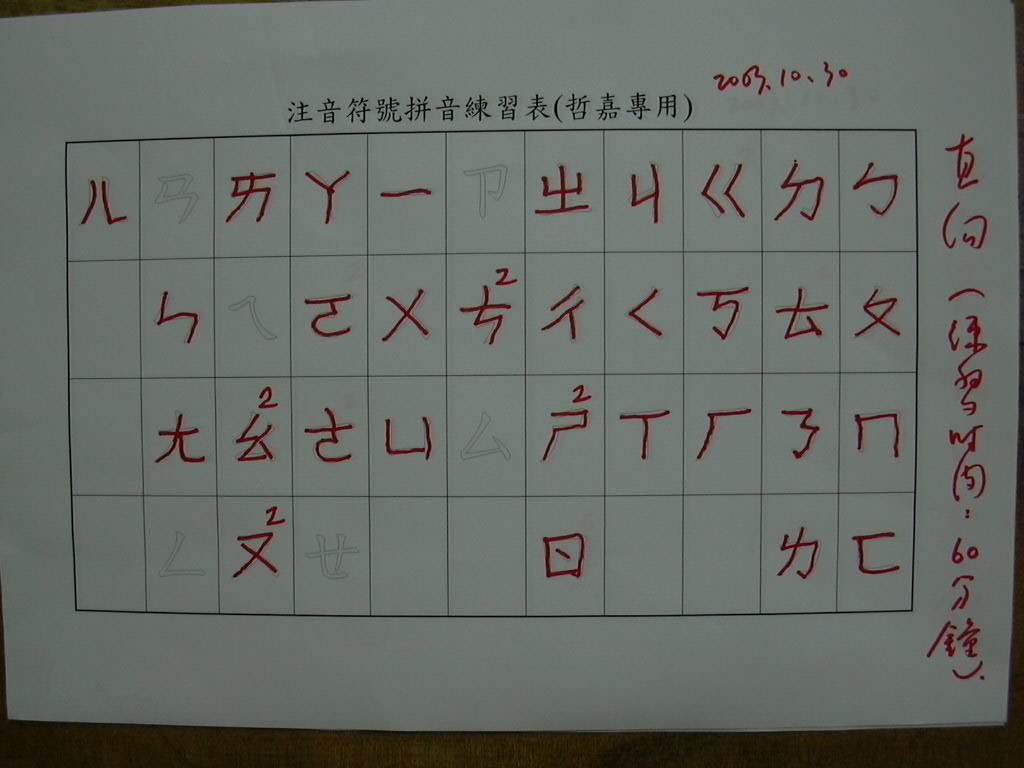 2003.10.30
注音符號拼音練習表(哲嘉專用)
ㄦ ㄢ ㄞ ㄚ ㄧ ㄗ ㄓ ㄐ ㄍ ㄉ ㄅ
ㄣ ㄟ ㄛ ㄨ ㄘ2 ㄔ ㄑ ㄎ ㄊ ㄆ
ㄤ ㄠ2 ㄜ ㄩ ㄙ ㄕ2 ㄒ ㄏ ㄋ ㄇ
ㄥ ㄡ2 ㄝ ㄖ ㄌ ㄈ
直向(練習時間:60分鐘).